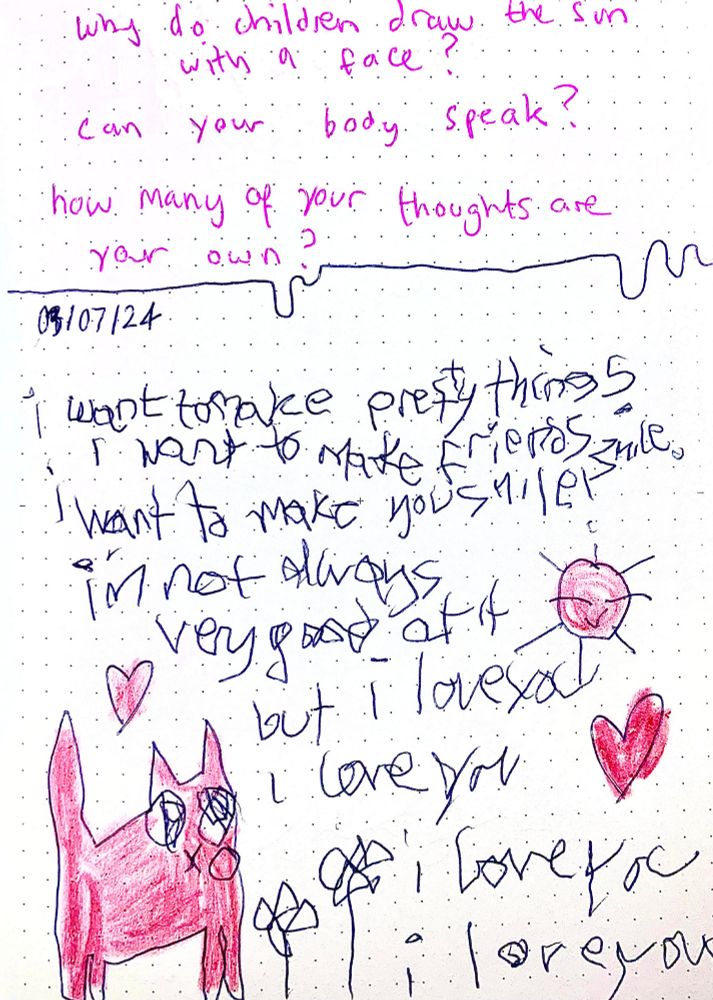 why do children draw the sun
with a face?
can your body speak?
how many of your thoughts are
your own?
03/07/24
i want to make pretty things
i want to make friends smile.
i want to make you smile
i'm not always
very good at it
but i love you
i love you
i love you
i love you